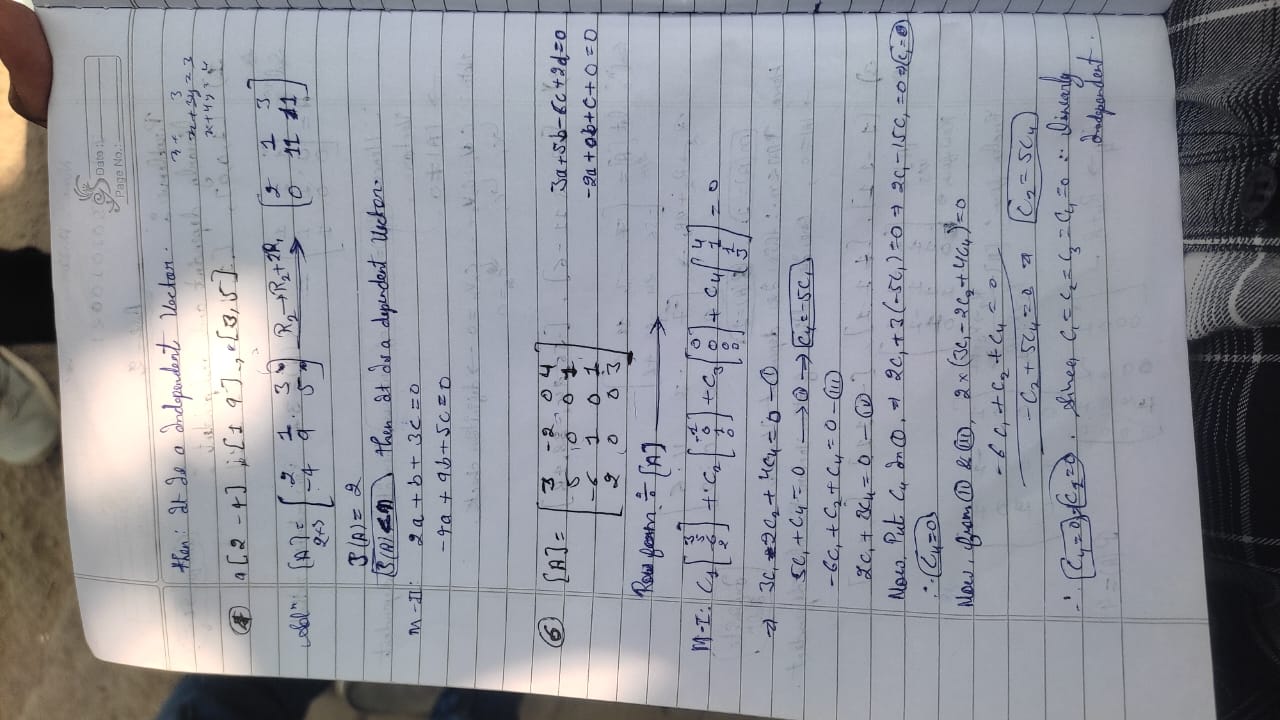 Date :
Page No. :
then: It is a independent Vector.
x+3y=3
④ [2 -4], [1 9], [3, 5]
Solⁿ: [A] = [2 1 3 R₂→R₂+2R₁ [2 1 3
2×3 -4 9 5] 0 11 11]
S(A) = 2
S(A) < n then it is a dependent Vector.
M-II: 2a + b + 3c = 0
-4a + 9b + 5c = 0
⑤ [A] = [3 -2 0 4 3a+5b-6c+2d=0
5 0 0 1 -2a+0b+c+0=0
-6 1 0 1
2 0 0 3]
Row form ÷ [A] →
M-I: C₁[3 5 -6 2] + C₂[-2 0 1 0] + C₃[0 0 0 0] + C₄[4 1 1 3] = 0
⇒ 3C₁ - 2C₂ + 4C₄ = 0 - ①
5C₁ + C₄ = 0 → ② → C₄ = -5C₁
-6C₁ + C₂ + C₄ = 0 - ③
2C₁ + 3C₄ = 0 - ④
Now Put C₄ in ④, ⇒ 2C₁ + 3(-5C₁) = 0 ⇒ 2C₁ - 15C₁ = 0 ⇒ C₁ = 0
∴ C₄ = 0
Now, from ① & ③, 2×(3C₁ - 2C₂ + 4C₄) = 0
-6C₁ + C₂ + C₄ = 0
-C₂ + 5C₄ = 0 ⇒ C₂ = 5C₄
∴ C₄ = 0, C₂ = 0. C₁ = C₂ = C₃ = C₄ = 0 ∴ Linearly
Independent.